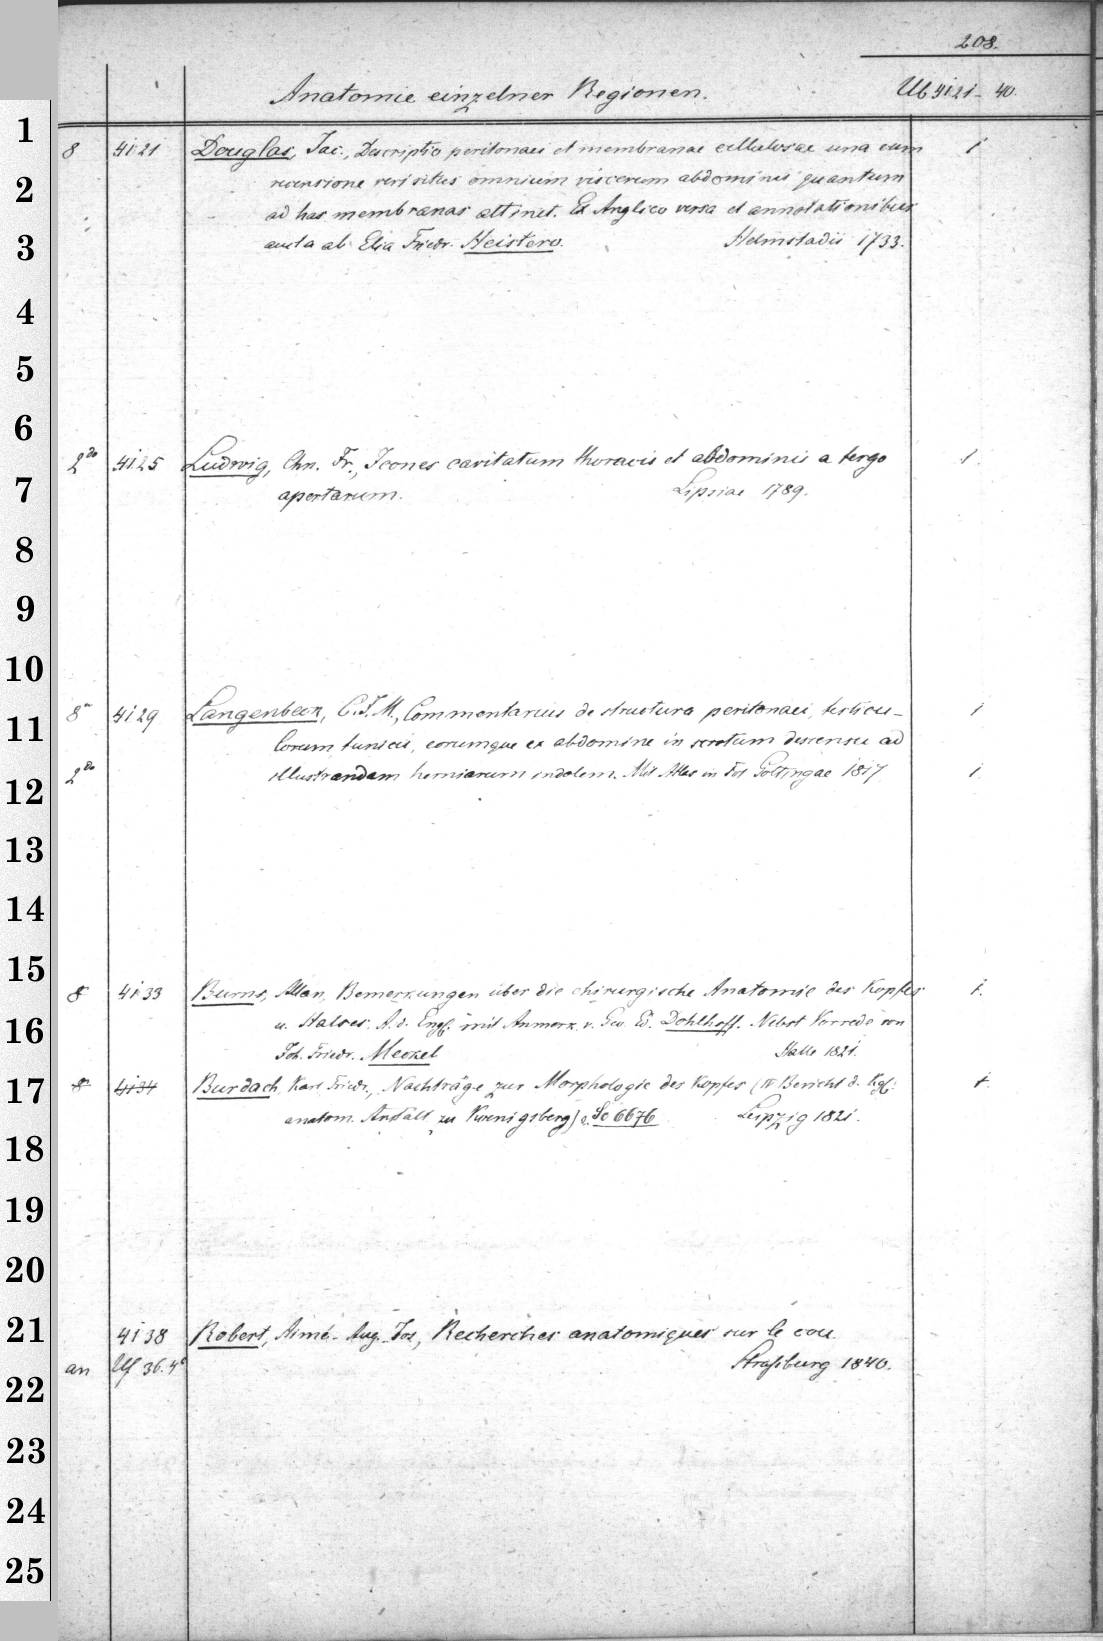 208.
Anatomie einzelner Regionen. Ub 4121-40.
1
8 4121 Douglas, Jac., Descriptio peritonaei et membranae cellulosae una cum 1
2
recensione veri situs omnium viscerum abdominis quantum
ad has membranas attinet. Ex Anglico versa et annotationibus
3
aucta ab Elia Friedr. Heistero. Helmstadii 1733.
4
5
6
2do 4125 Ludwig, Chn. Fr., Icones cavitatum thoracis et abdominis a tergo 1.
7
apertarum. Lipsiae 1789.
8
9
10
8 4129 Langenbeck, C.J.M., Commentarius de structura peritonaei, testicu- 1
11
lorum tunicis, eorumque ex abdomine in scrotum descensu ad
2do illustrandam herniarum indolem. Mit Atlas in Fol Gottingae 1817 1.
12
13
14
15
8 4133 Burns, Allan, Bemerkungen über die chirurgische Anatomie des Kopfes 1.
16
u. Halses. A. d. Engl. mit Anmerk. v. Geo. Ed. Dohlhoff. Nebst Vorrede von
Joh. Friedr. Meckel Halle 1821.
17
8 4134 Burdach, Karl Friedr., Nachträge zur Morphologie des Kopfes (IV Bericht d. Kgl. 1.
anatom. Anstalt zu Koenigsberg) s. Sc 6676 Leipzig 1821.
18
19
20
21
4138 Robert, Aimé-Aug. Jos, Recherches anatomiques sur le cou.
an Uf 36.4° Straßburg 1840.
22
23
24
25